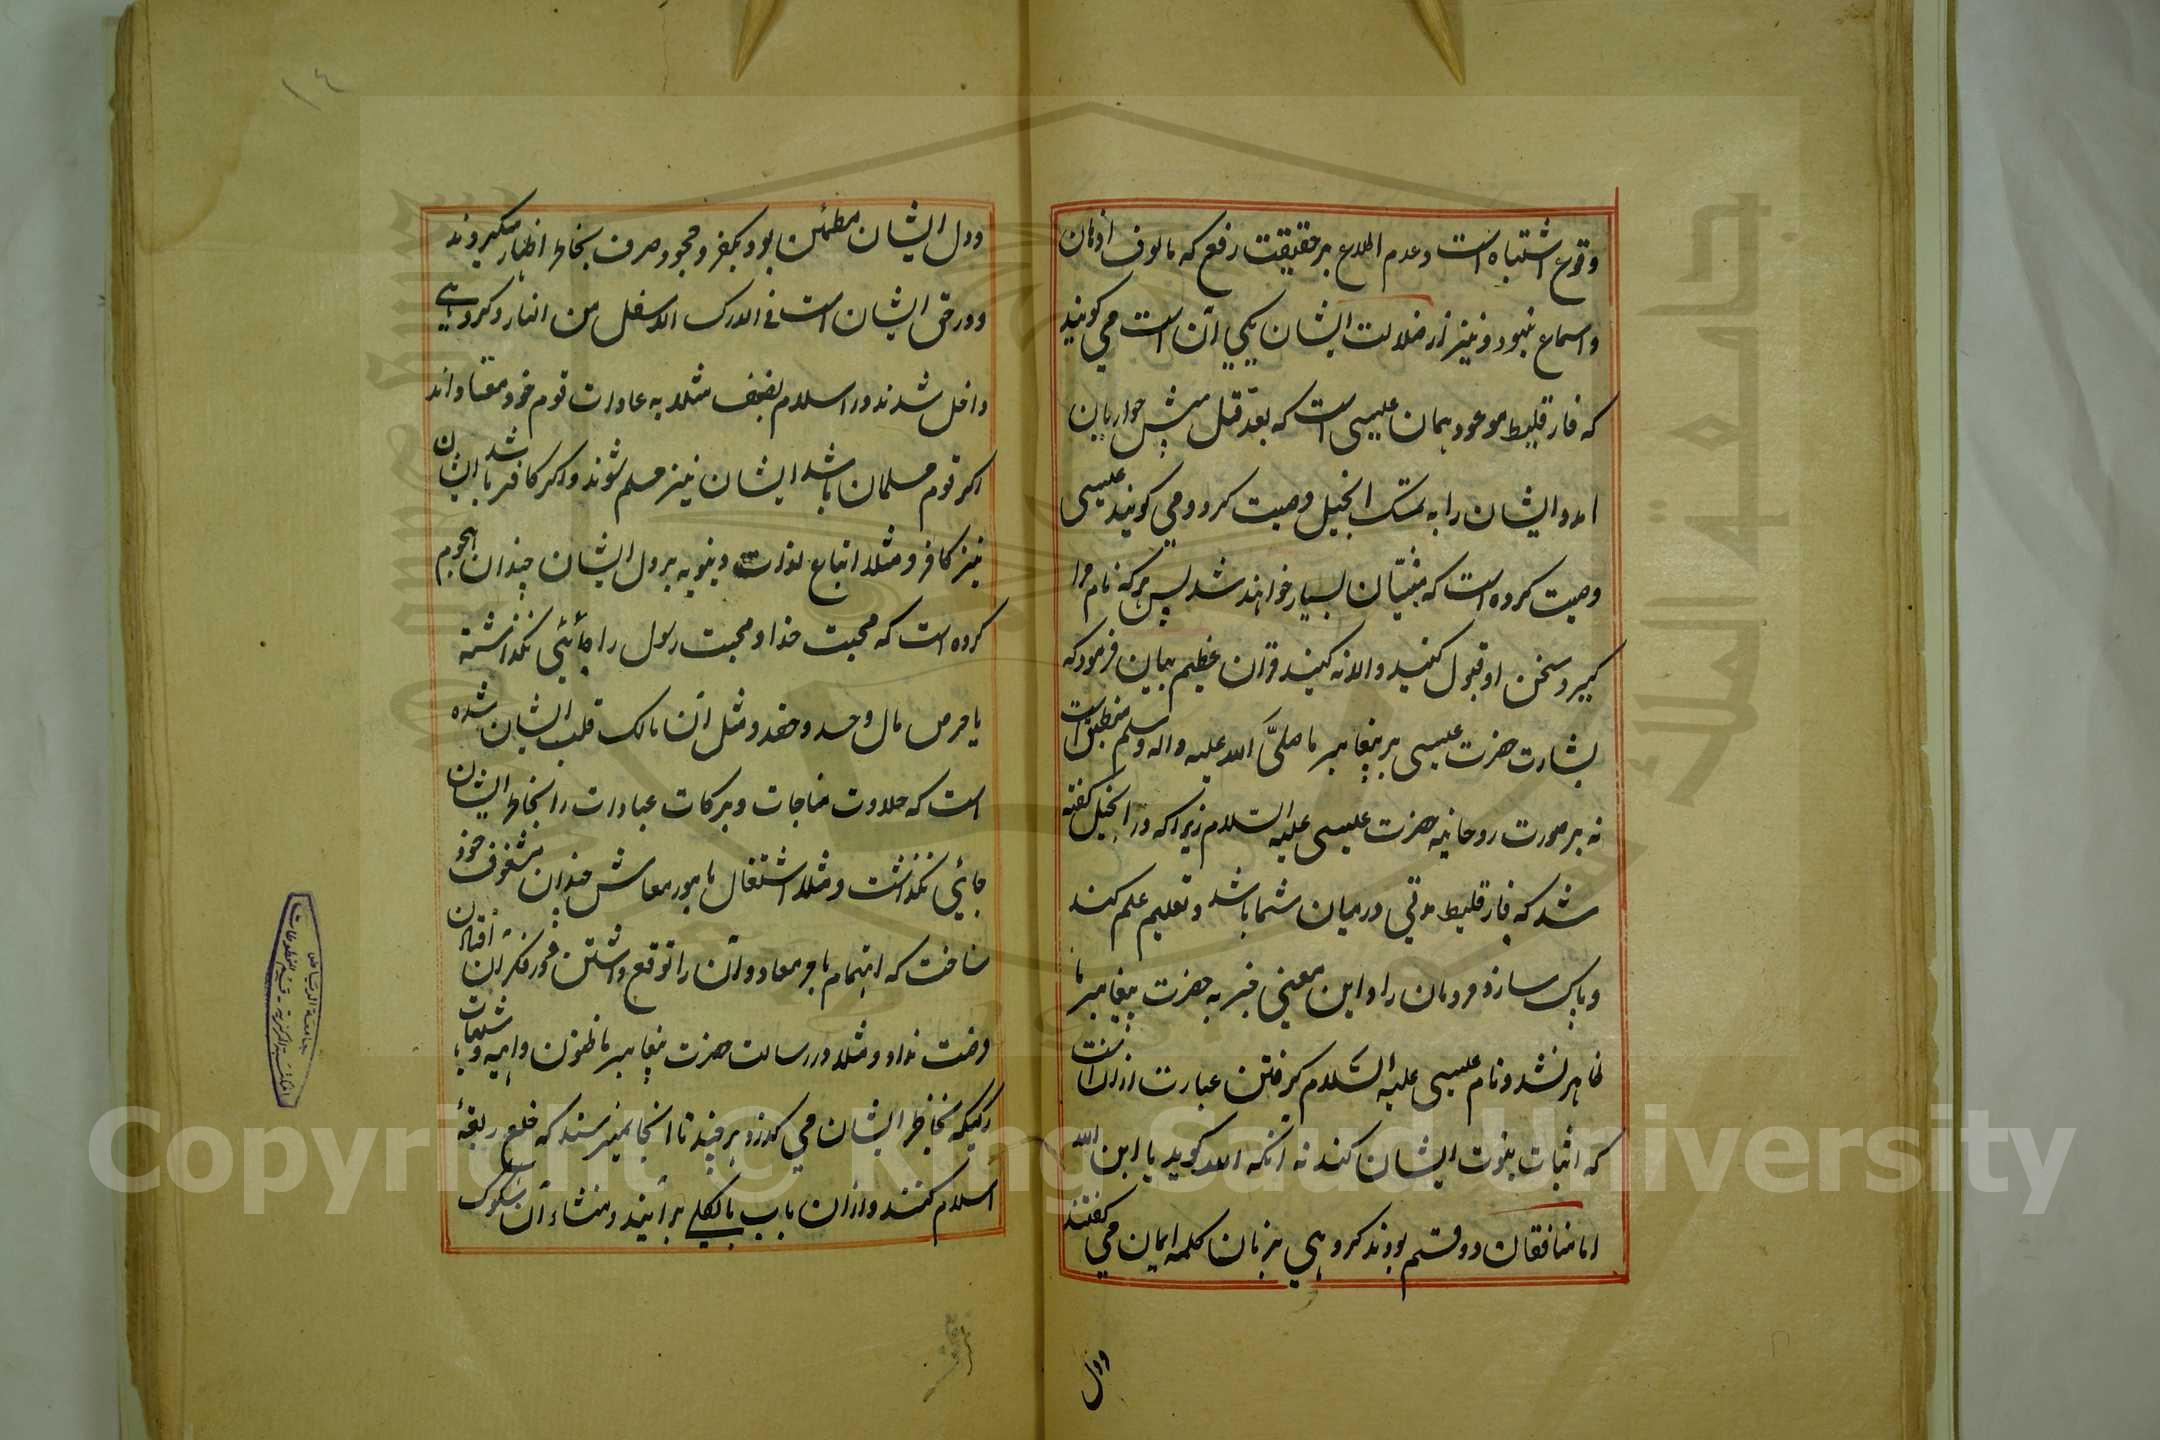 وقوع اشتباه است وعدم اطلاع بر حقیقت رفع که مالوف اذهان
واسماع نبود ونیز از ضلالت ایشان یکی آن است می کویند
که فارقلیط موعود همان عیسی است که بعد قتل پیش حواریان
امد و ایشان را به تمسک انجیل وصیت کرد و می کویند عیسی
وصیت کرده است که متنبیان بسیار خواهند شد پس هرکه نام مرا
کیرد سخن او قبول کنید والا نه کنید قرآن عظیم بیان فرمود که
بشارت حضرت عیسی بر پیغامبر ما صلی الله علیه واله وسلم منطبق است
نه بر صورت روحانیه حضرت عیسی علیه السلام زیرا که در انجیل کفته
شد که فارقلیط مدتی درمیان شما باشد و تعلیم علم کند
و پاک سازد مردمان را و این معنی غیر به حضرت پیغامبر ما
ظاهر نشد و نام عیسی علیه السلام کرفتن عبارت ازان است
که اثبات نبوت ایشان کند نه آنکه الله کوید یا ابن الله
اما منافقان دو قسم بودند کروهی بزبان کلمه ایمان می کفتند
ودل
ودل ایشان مطمئن بود بکفر و جحود صرف بخاطر اظهار میکیروند
و در حق ایشان است فی الدرک الاسفل من النار وکروهی
داخل شدند در اسلام بضعف مثلا به عادات قوم خود معتاد اند
اکر قوم مسلمان باشد ایشان نیز مسلم شوند واکر کافر باشد ایشان
نیز کافر و مثلا اتباع لذات دنیویه بر دل ایشان چندان هجوم
کرده است که محبت خدا و محبت رسول را جائی نکذاشته
یا حرص مال و حسد و حقد و مثل آن مالک قلب ایشان شده
است که حلاوت مناجات و برکات عبادات را بخاطر ایشان
جائی نکذاشت و مثلا اشتغال بامور معاش چندان مشغوف خود
ساخت که اهتمام بامر معاد و آن را توقع داشتن و در فکر ان افتادن
فرصت نداد و مثلا در رسالت حضرت پیغامبر ما ظنون واهیه و شبهات
رکیکه بخاطر ایشان می کذرد هر چند تا انجا نمیرسند که خلع ربقهٔ
اسلام کنند و ازان باب بالکلیه برآیند و منشاء آن شکوک
١٤
جامعة الرياض
المكتبة المركزية قسم المخطوطات
جامعة الملك سعود
Copyright © King Saud University